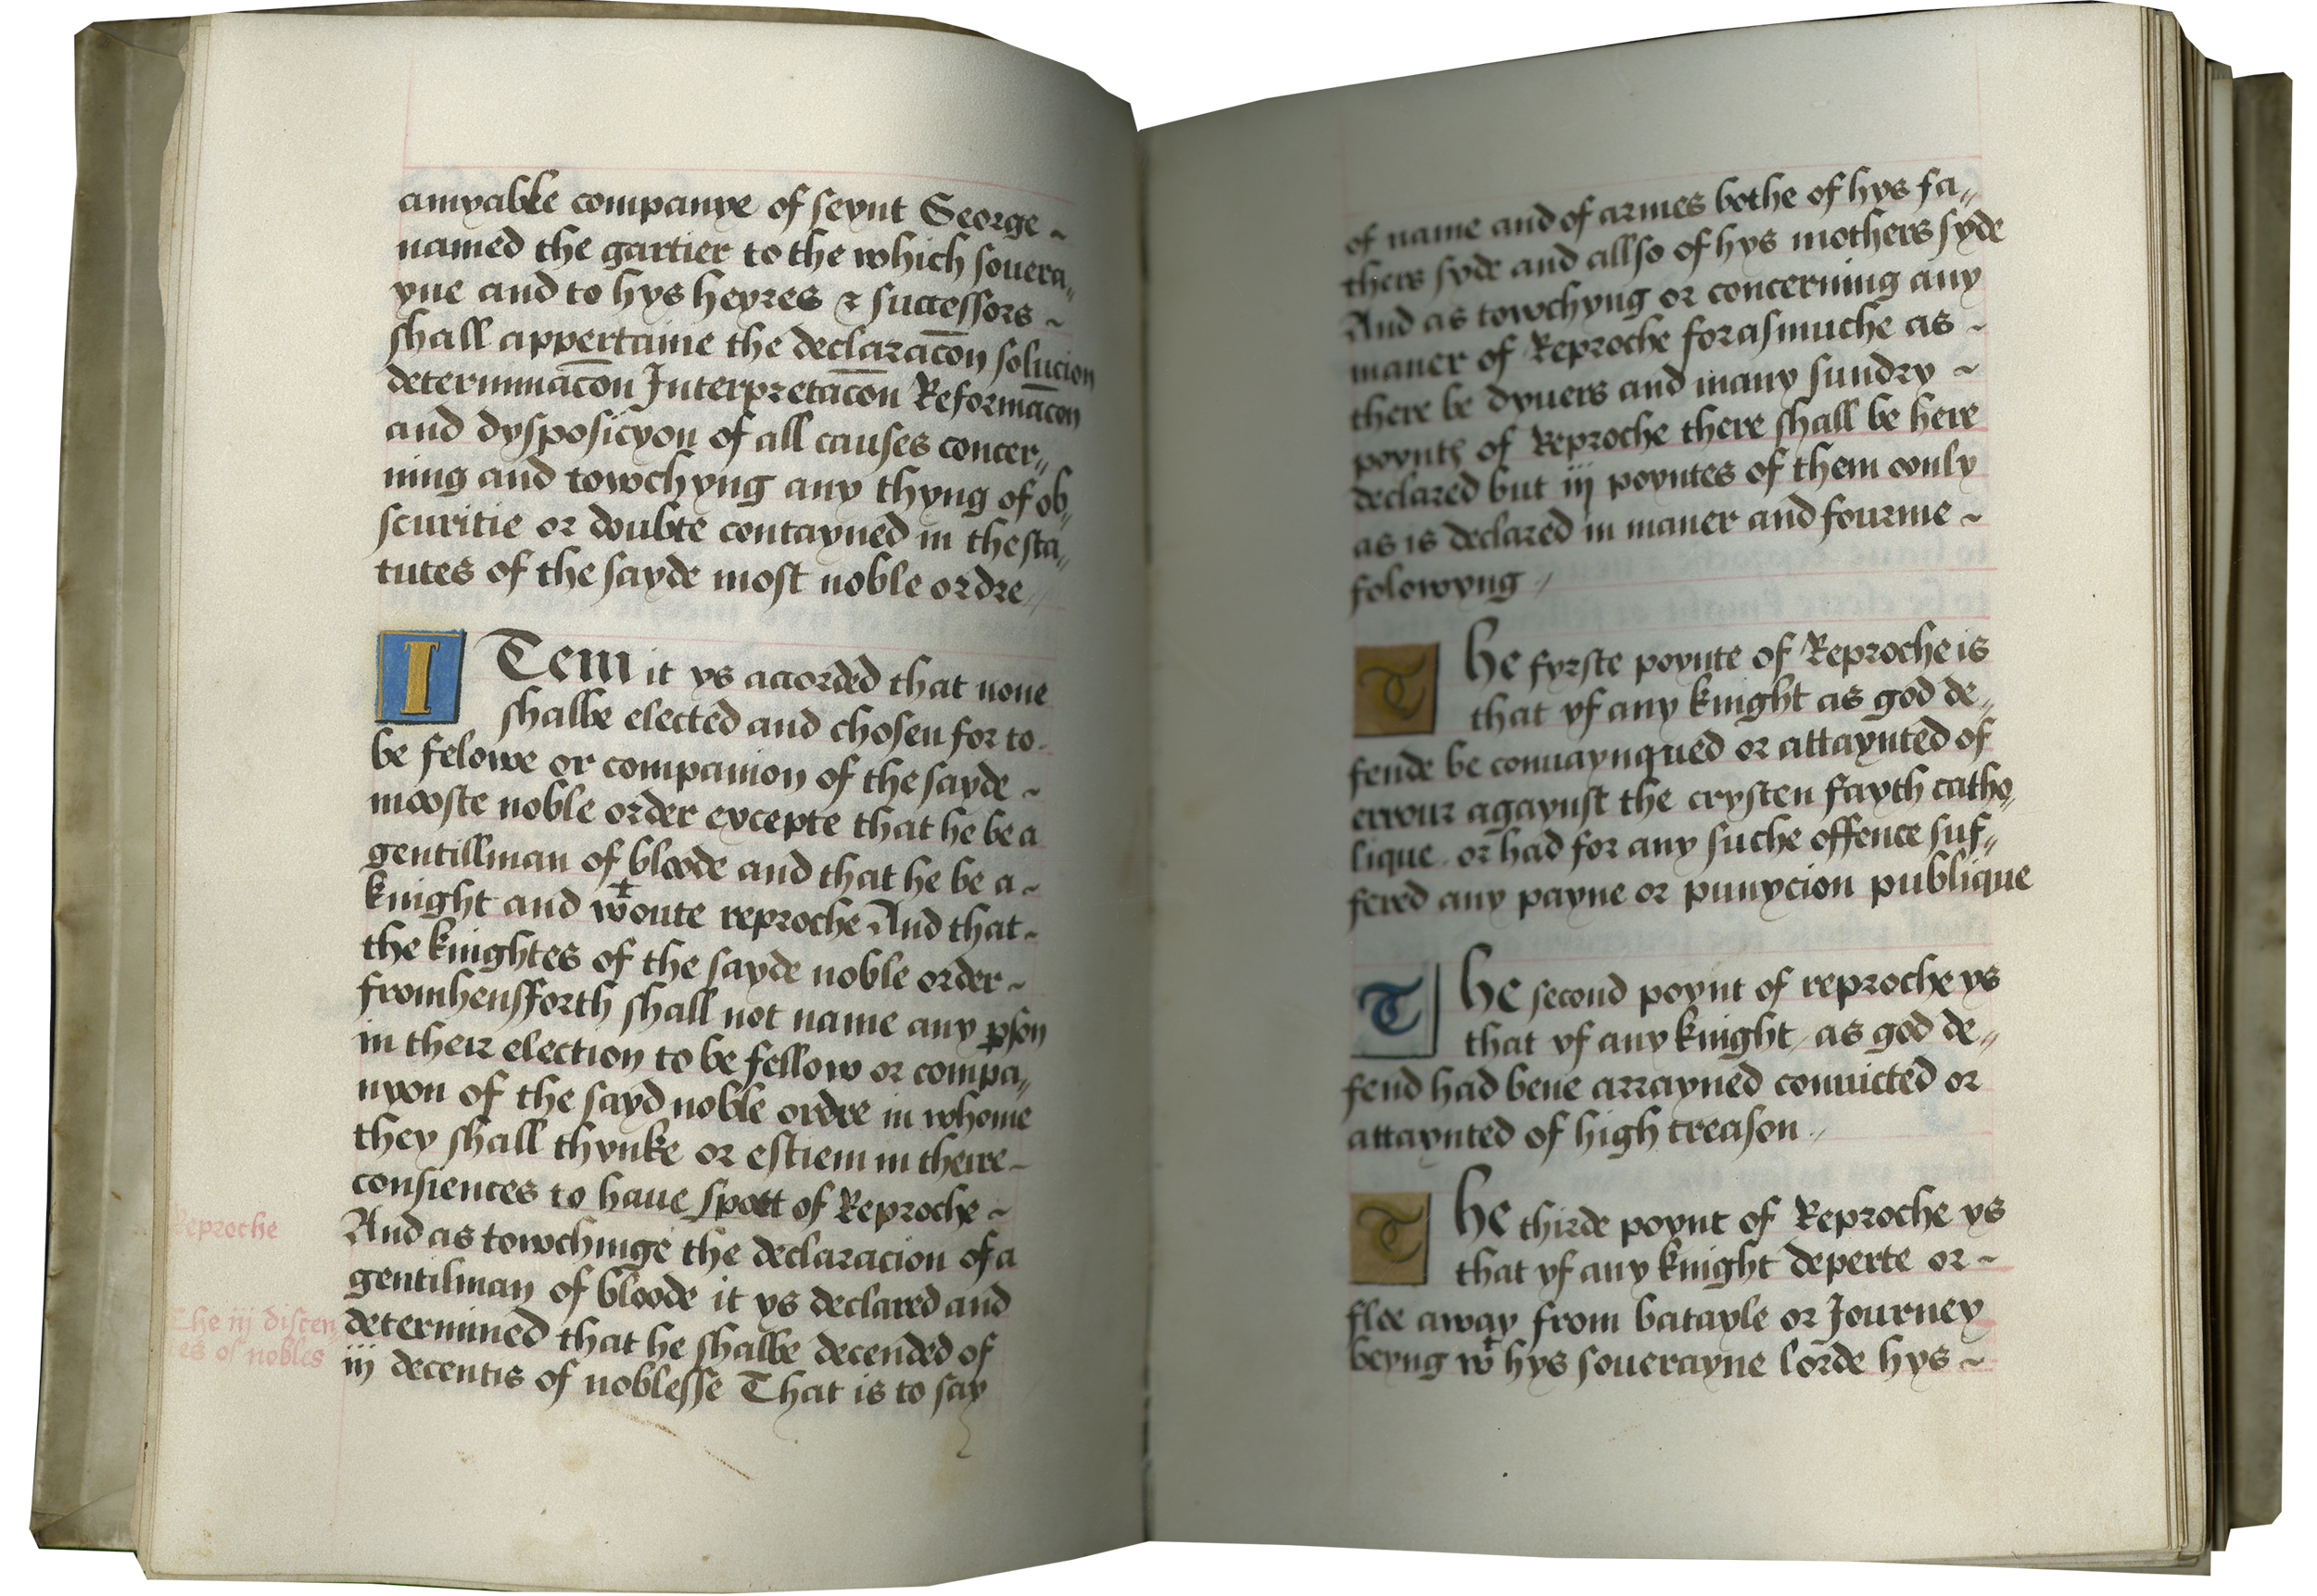 amyable companye of seynt George ~
named the gartier to the which souera„
yne and to hys heyres & successors ~
shall appertaine the declaracõn solucion
determinacõn Interpretacõn Reformacõn
and dysposicyon of all causes concer„
ning and towchyng any thyng of ob„
scuritie or doubte contayned in the sta„
tutes of the sayde most noble ordre //
ITem it ys accorded that none
shalbe elected and chosen for to
be felowe or companion of the sayde ~
mooste noble order excepte that he be a
gentillman of bloode and that he be a ~
knight and wᵗoute reproche And that ~
the knightes of the sayde noble order ~
fromhensforth shall not name any pson
in their election to be fellow or compa„
nyon of the sayd noble ordre in whome
they shall thynke or estiem in theire ~
consiences to haue spott of Reproche ~
Reproche
And as towchinge the declaracion of a
gentilman of bloode it ys declared and
The iij discen„
determined that he shalbe decended of
tes of nobles
iij decentis of noblesse That is to say
of name and of armes bothe of hys fa„
thers syde and allso of hys mothers syde
And as towchyng or concerning any
maner of Reproche forasmuche as ~
there be dyuers and many sundry ~
poyntꝭ of Reproche there shall be here
declared but iij poyntes of them oonly
as is declared in maner and fourme ~
folowyng //
The fyrste poynte of Reproche is
that yf any knight as god de„
fende be conuaynqued or attaynted of
errour agaynst the crysten fayth catho„
lique or had for any suche offence suf„
fered any payne or punycion publique
The second poynt of reproche ys
that yf any knight / as god de„
fend had bene arrayned conuicted or
attaynted of high treason //
The thirde poynt of Reproche ys
that yf any knight deperte or ~
flee away from batayle or Journey
beyng wᵗ hys souerayne lorde hys ~